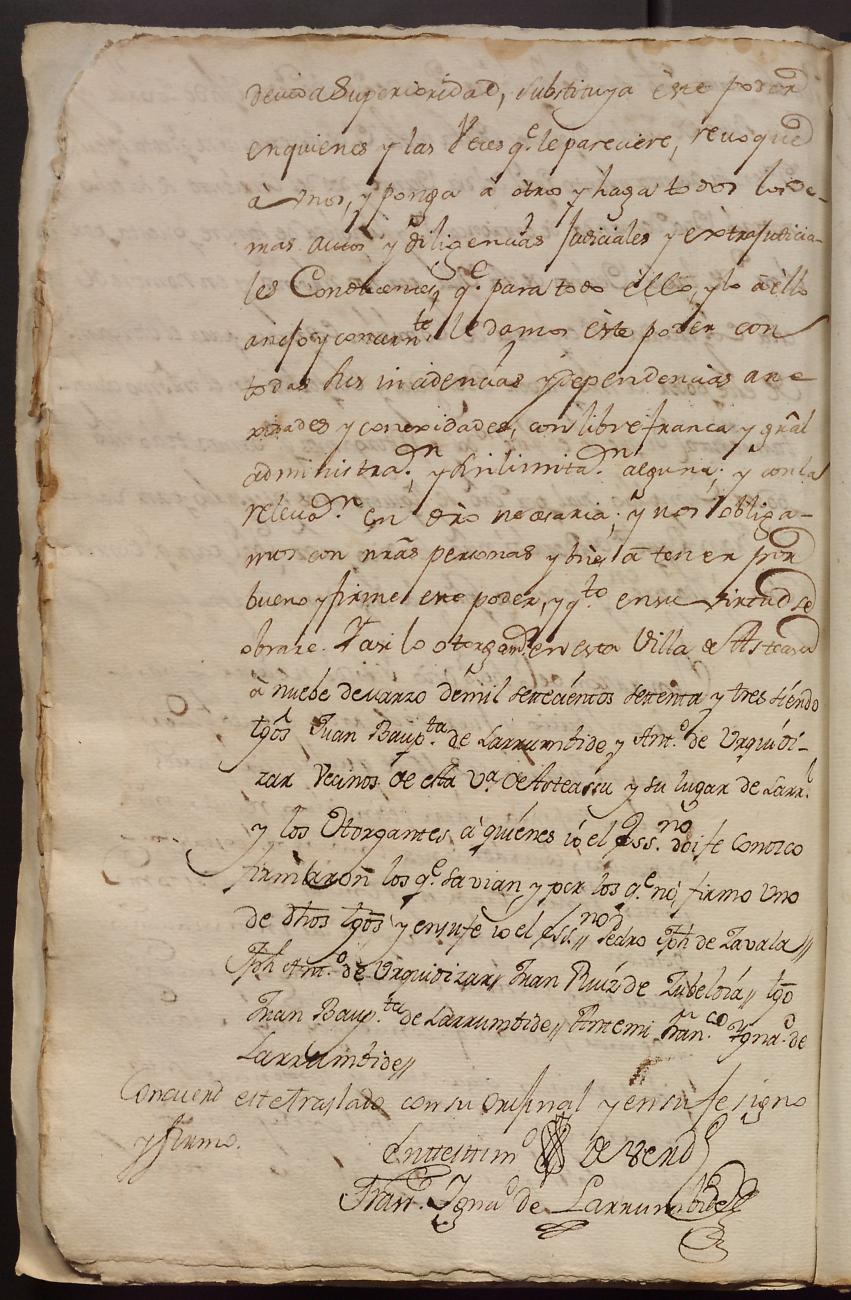 devida Superioridad, substituya este poder
en quienes y las Veces q.e le pareciere, revoque
à unos, y ponga à otros y haga todos los de-
mas autos y diligencias Judiciales y extrajudicia-
les Conducentes, q.e para todo ello, y lo à ello
anejo y concern.te le damos este poder con
todas sus incidencias y dependencias ane-
xidades y conexidades, con libre franca y grãl
administra.on y sin limita.on alguna; y con la
releva.on en dr̃o necesaria; y nos obliga-
mos con nr̃as personas y bie.s à tener por
bueno y firme este poder, y q.to en su virtud se
obrare. Y asi lo otorgam.s en esta Villa de Asteasu
à nuebe de marzo de mil settecientos settenta y tres siendo
tgõs Juan Baup.ta de Larrumbide y Ant.o de Urquidi-
zar Vecinos de esta V.a de Asteassu y su lugar de Larr.l
y los Otorgantes, à quiénes io el Ess.no doi fe Conozco
firmaron los q.e savian, y por los q.e no, firmo uno
de dhos tgõs y en su fe io el Ess.no // Pedro Jph de Zavala //
Jph Ant.o de Urquidizar // Juan Ruiz de Zubeldia // tgõ
Juan Baup.ta de Larrumbide // Ante mi Fran.co Ygna.o de
Larrumbide //
Concuerd este traslado con su original y en su fe signo
y firmo.
En testim.o de verd.
Fran.co Ygna.o de Larrumbide